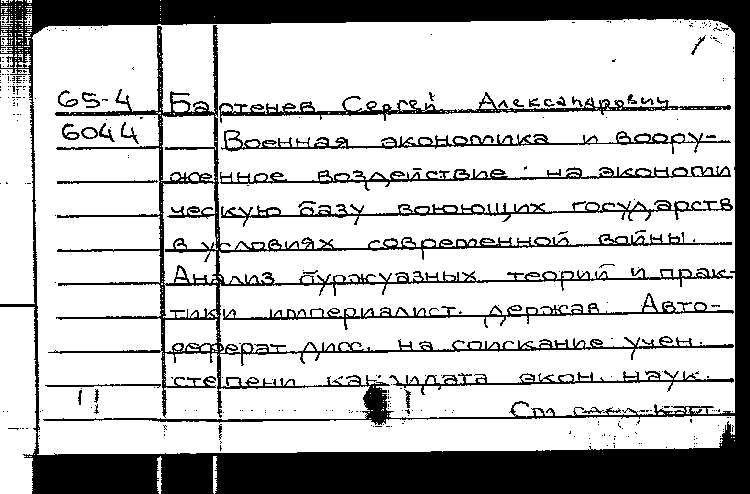 65-4 Бартенев, Сергей Александрович
6044 Военная экономика и воору-
женное воздействие на экономи
ческую базу воюющих государств
в условиях современной войны.
Анализ буржуазных теорий и прак-
тики империалист. держав. Авто-
реферат дисс. на соискание учен.
степени кандидата экон. наук.
См. след. карт.